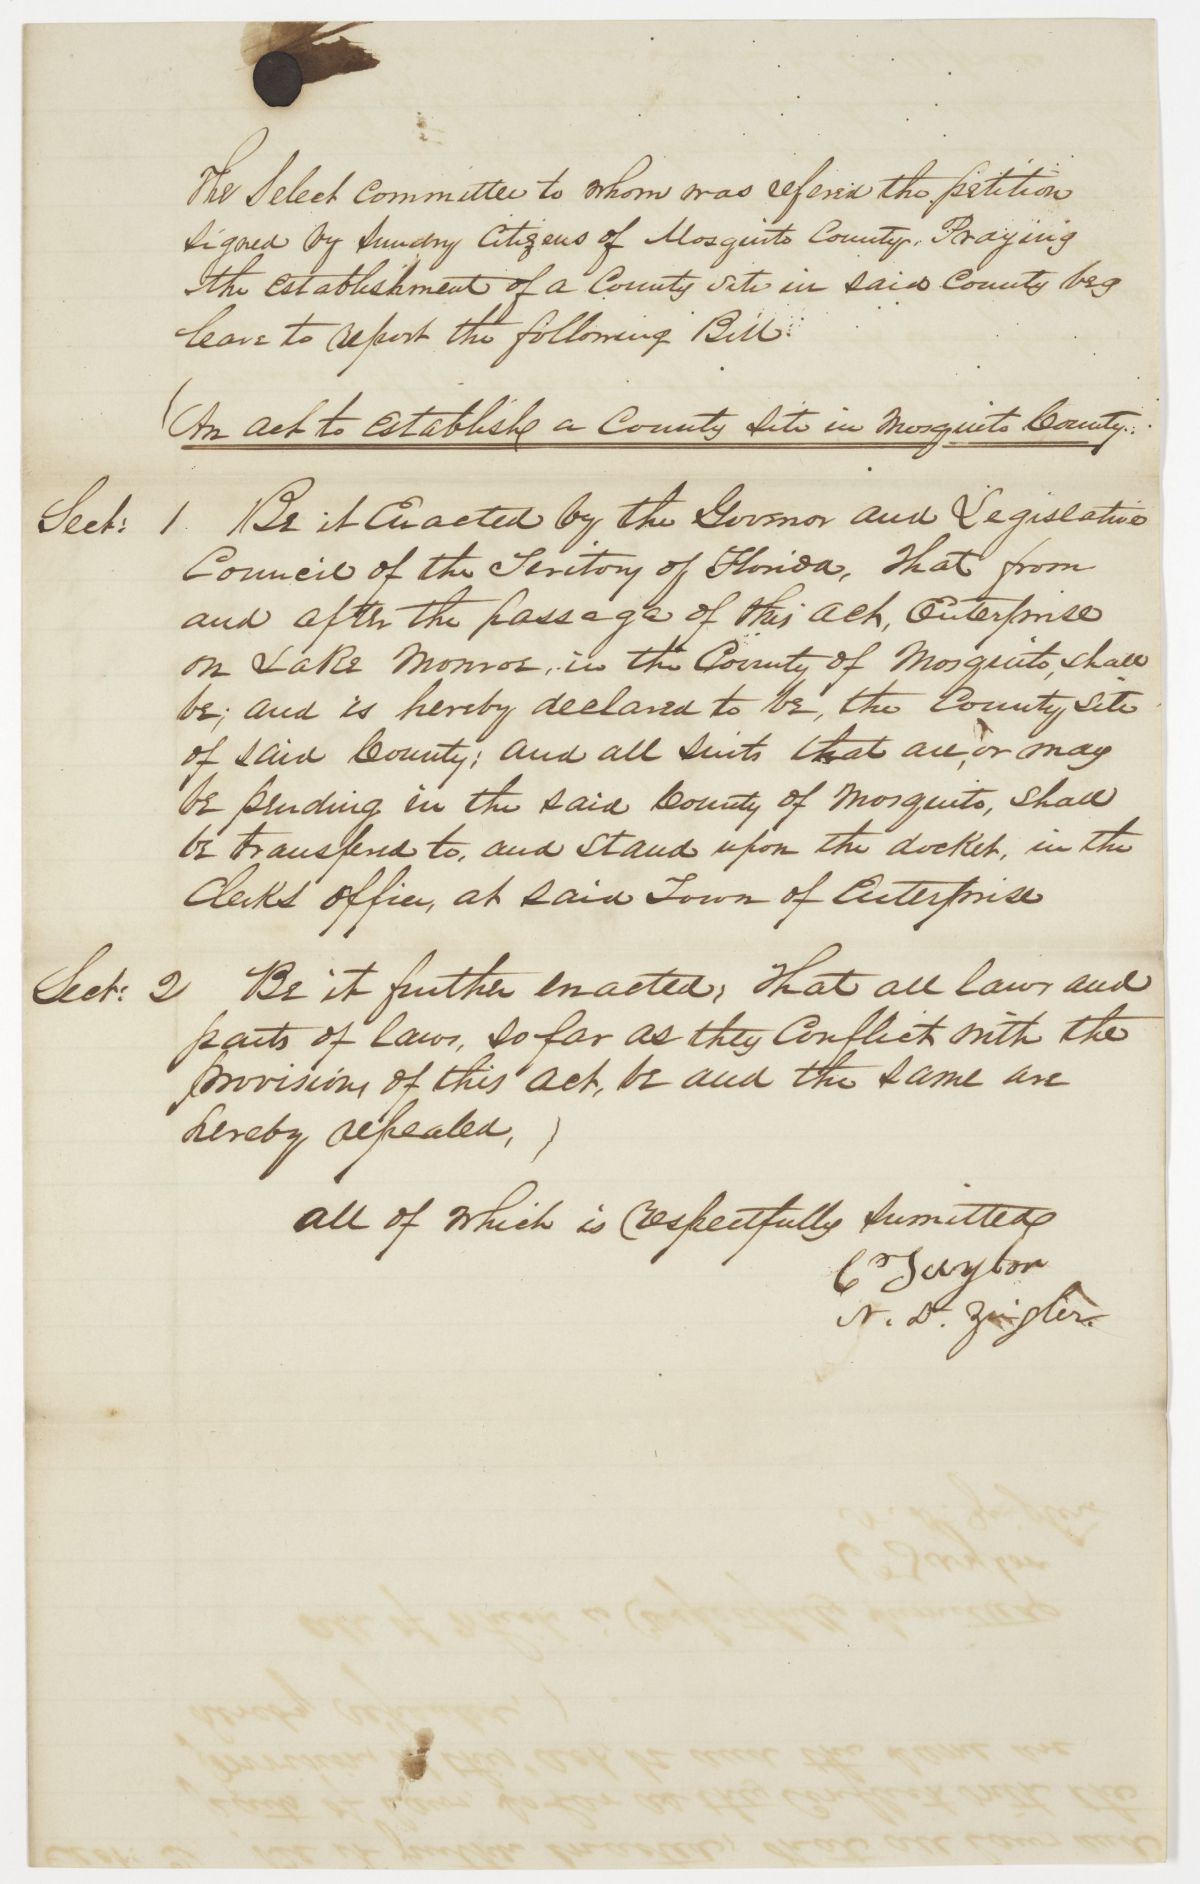 The Select Committee to whom was refered the petition
signed by sundry Citizens of Mosquito County, Praying
the establishment of a County site in said County beg
leave to report the following Bill:
(An act to establish a County Site in Mosquito County.
Sect: 1 Be it Enacted by the Govenor and Legislative
Council of the Teritory of Florida, That from
and after the passage of this act, Enterprise
on Lake Monroe, in the County of Mosquito, shall
be; and is hereby declared to be, the County site
of said County; and all suits that are, or may
be pending in the said County of Mosquito, shall
be transfered to, and stand upon the docket, in the
Clerks office, at said Town of Enterprise
Sect: 2 Be it further enacted, That all laws and
parts of laws, so far as they Conflict with the
provisions of this act, be and the same are
hereby repealed, )
all of which is respectfully sumitted
C Taylor
N. D. Zeigler.